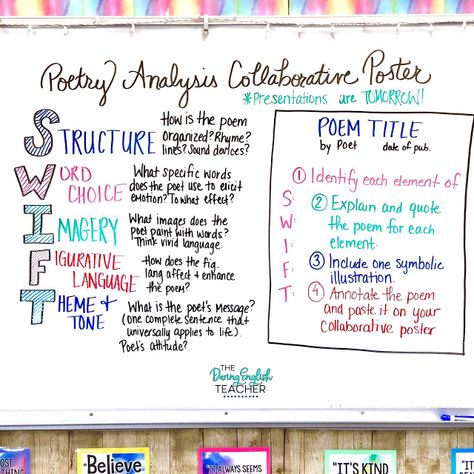 Poetry Analysis Collaborative Poster
*Presentations are TOMORROW!
STRUCTURE
How is the poem
organized? Rhyme?
lines? Sound devices?
WORD
CHOICE
What specific words
does the poet use to elicit
emotion? To what effect?
IMAGERY
What images does the
poet paint with words?
Think vivid language.
FIGURATIVE
LANGUAGE
How does the fig.
lang affect & enhance
the poem?
THEME &
TONE
What is the poet's message?
(one complete sentence that
universally applies to life).
Poet's attitude?
POEM TITLE
by Poet date of pub.
S
W
I
F
T:
① Identify each element of
② Explain and quote
the poem for each
element.
③ Include one symbolic
illustration.
④ Annotate the poem
and paste it on your
collaborative poster
THE
Daring English
TEACHER
"Believe
"IT ALWAYS SEEMS
"IT'S KIND